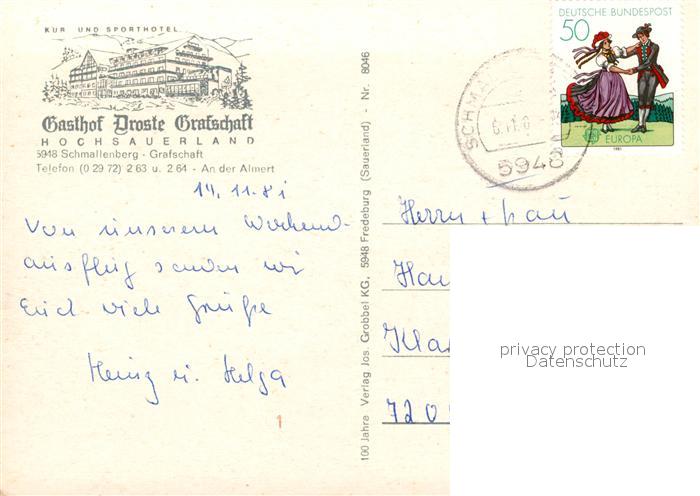 KUR UND SPORTHOTEL
Gasthof Droste Grafschaft
HOCHSAUERLAND
5948 Schmallenberg - Grafschaft
Telefon (0 29 72) 2 63 u. 2 64 - An der Almert
14. 11. 81
Von unserem Wochend-
ausflug senden wir
Euch viele Grüße
Heinz u. Helga
1
100 Jahre Verlag Jos. Grobbel KG, 5948 Fredeburg (Sauerland) - Nr. 8046
DEUTSCHE BUNDESPOST
50
EUROPA
1981
SCHMA
5948
Herrn + Frau
Hau
Kla
720
privacy protection
Datenschutz